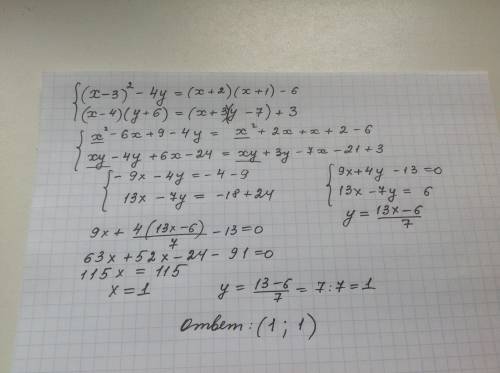 (x-3)² - 4y = (x+2)(x+1) - 6
(x-4)(y+6) = (x+3)(y-7) + 3
x² - 6x + 9 - 4y = x² + 2x + x + 2 - 6
xy - 4y + 6x - 24 = xy + 3y - 7x - 21 + 3
- 9x - 4y = -4 - 9
13x - 7y = -18 + 24
9x + 4y - 13 = 0
13x - 7y = 6
y = (13x-6)/7
9x + 4(13x-6)/7 - 13 = 0
63x + 52x - 24 - 91 = 0
115x = 115
x = 1
y = (13-6)/7 = 7:7 = 1
Ответ: (1; 1)